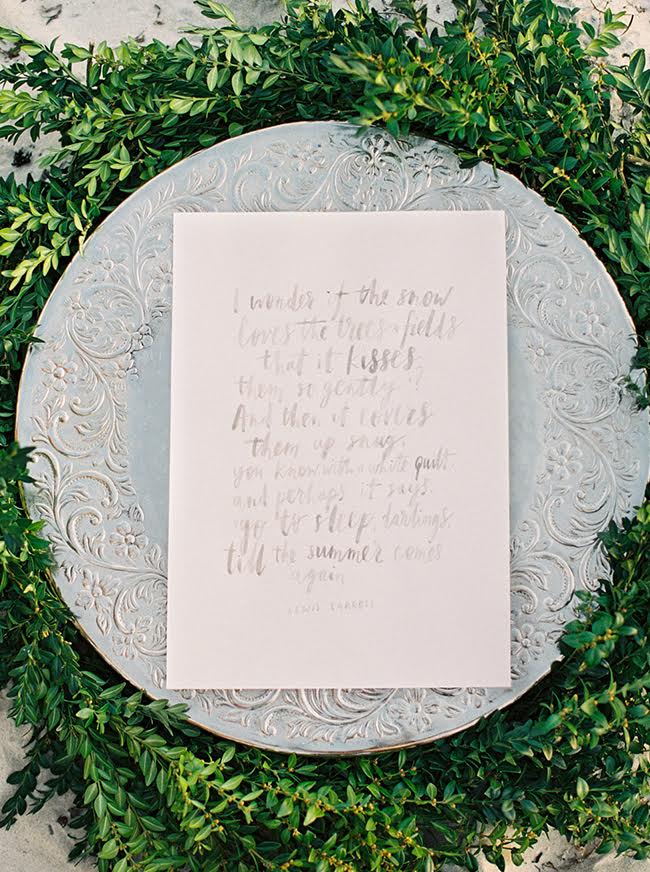 I wonder if the snow
loves the trees & fields
that it kisses
them so gently?
And then it covers
them up snug,
you know, with a white quilt,
and perhaps it says,
"go to sleep, darlings,
till the summer comes
again
LEWIS CARROLL